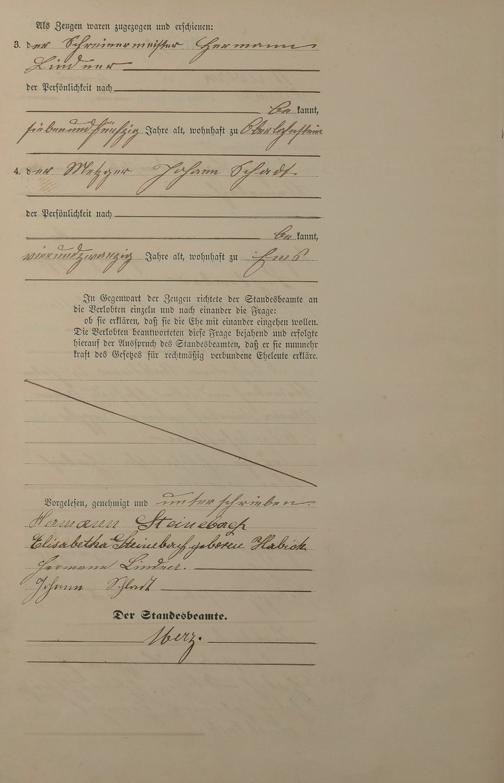 Als Zeugen waren zugezogen und erschienen:
3. der Schreinermeister Hermann
Lindner
der Persönlichkeit nach
be kannt,
siebenundfünfzig Jahre alt, wohnhaft zu Oberlahnstein
4. der Metzger Johann Schadt
der Persönlichkeit nach
be kannt,
vierundzwanzig Jahre alt, wohnhaft zu Ems
In Gegenwart der Zeugen richtete der Standesbeamte an
die Verlobten einzeln und nach einander die Frage:
ob sie erklären, daß sie die Ehe mit einander eingehen wollen.
Die Verlobten beantworteten diese Frage bejahend und erfolgte
hierauf der Ausspruch des Standesbeamten, daß er sie nunmehr
kraft des Gesetzes für rechtmäßig verbundene Eheleute erkläre.
Vorgelesen, genehmigt und unterschrieben.
Hermann Steinebach
Elisabetha Steinebach geboren Habich
Hermann Lindner.
Johann Schadt
Der Standesbeamte.
Merz.